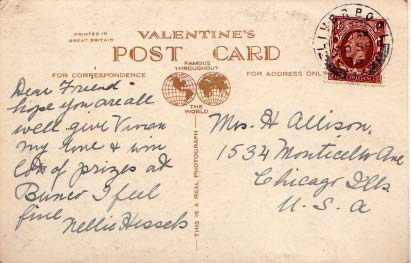 PRINTED IN
GREAT BRITAIN
VALENTINE'S
POST CARD
FOR CORRESPONDENCE
FAMOUS
THROUGHOUT
THE
WORLD
FOR ADDRESS ONLY
LIVERPOOL
THIS IS A REAL PHOTOGRAPH
Dear Friend
hope you are all
well give Vivian
my love & win
lots of prizes at
Bunco I feel
fine
Nellis Hessels
Mrs. H Allison,
1534 Monticello Ave
Chicago Ills
U. S. A